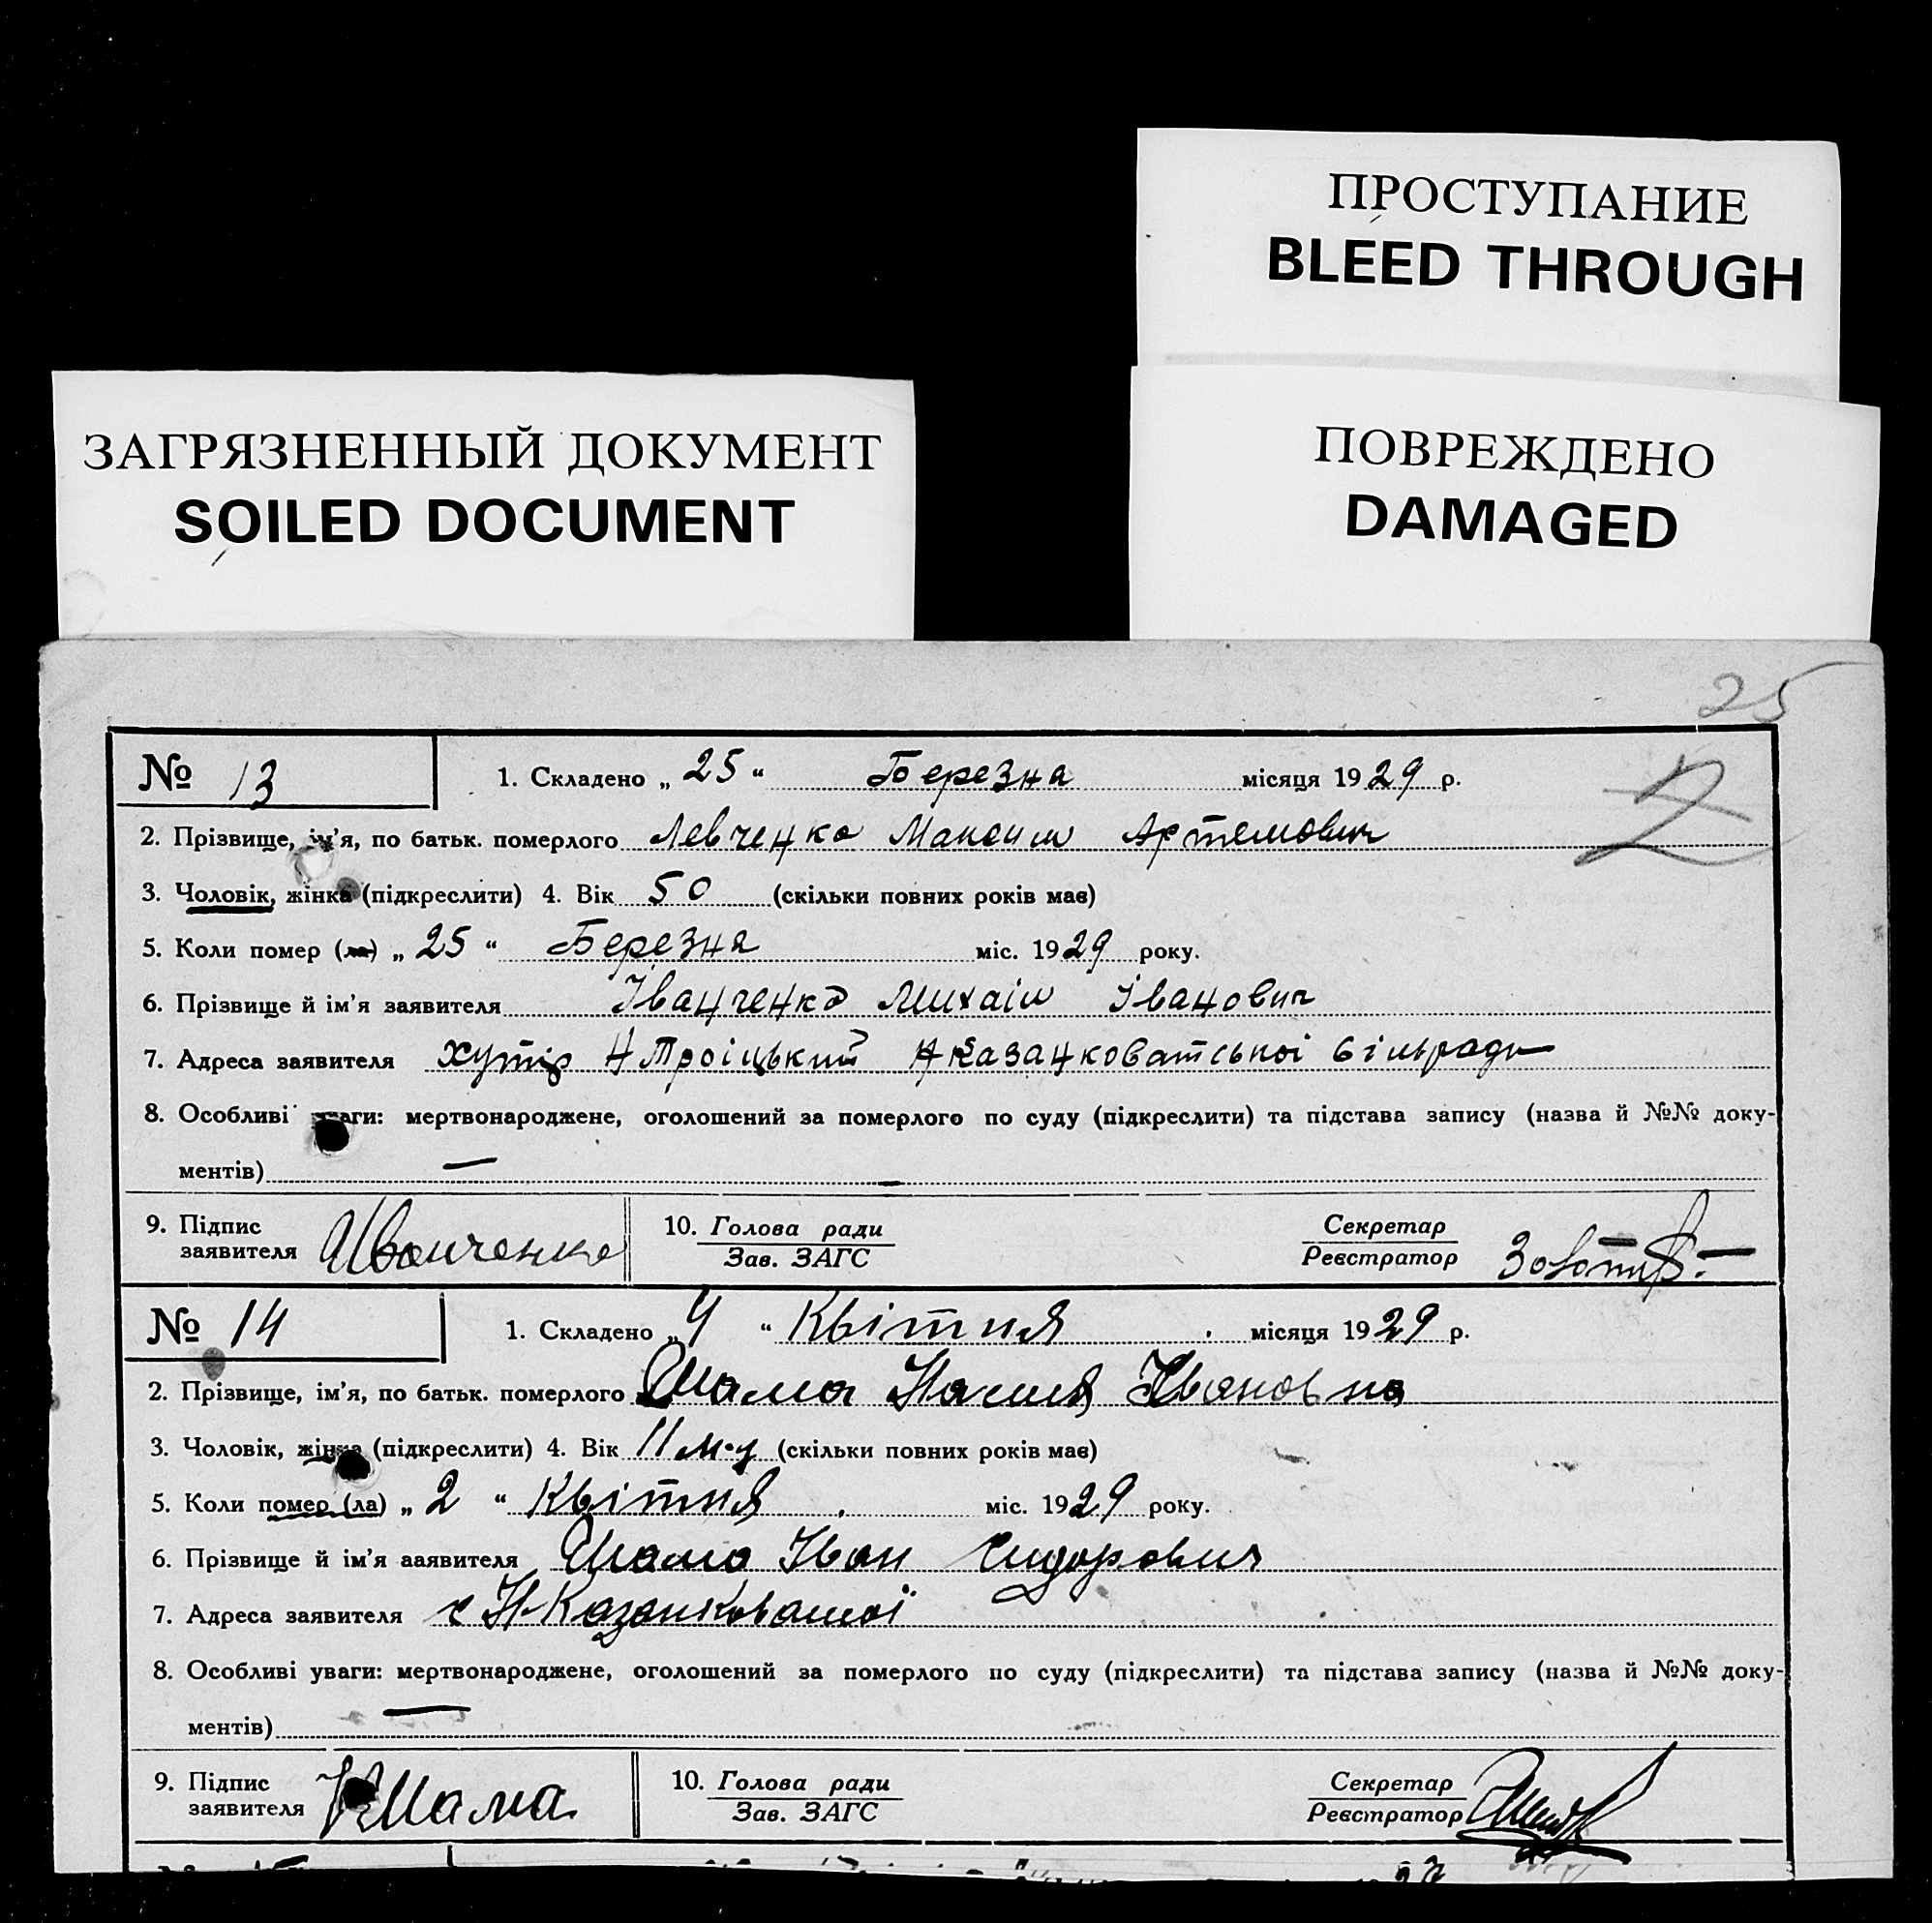 ПРОСТУПАНИЕ
BLEED THROUGH
ЗАГРЯЗНЕННЫЙ ДОКУМЕНТ
SOILED DOCUMENT
ПОВРЕЖДЕНО
DAMAGED
25
№ 13 1. Складено „ 25 “ Березня місяця 1929 р.
2. Прізвище, ім’я, по батьк. померлого Левченко Максим Артемович
3. Чоловік, жінка (підкреслити) 4. Вік 50 (скільки повних років має)
5. Коли помер (ла) „ 25 “ Березня міс. 1929 року.
6. Прізвище й ім’я заявителя Іванченко Михаїл Іванович
7. Адреса заявителя хутір Н Троіцький Н Казанковатської сільради
8. Особливі уваги: мертвонароджене, оголошений за померлого по суду (підкреслити) та підстава запису (назва й №№ доку-
ментів) —
9. Підпис заявителя Иванченко 10. Голова ради Зав. ЗАГС Секретар Реєстратор
№ 14 1. Складено „ 4 “ Квітня місяця 1929 р.
2. Прізвище, ім’я, по батьк. померлого Шама Ивановна
3. Чоловік, жінка (підкреслити) 4. Вік 11 (скільки повних років має)
5. Коли помер (ла) „ 2 “ Квітня міс. 1929 року.
6. Прізвище й ім’я заявителя Шама Іван Сидорович
7. Адреса заявителя с Н-Казанковатої
8. Особливі уваги: мертвонароджене, оголошений за померлого по суду (підкреслити) та підстава запису (назва й №№ доку-
ментів)
9. Підпис заявителя Шама 10. Голова ради Зав. ЗАГС Секретар Реєстратор